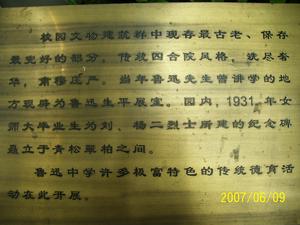 校园文物建筑群中现存最古老、保存
最完好的部分，传统四合院风格，洗尽奢
华，肃穆庄严。当年鲁迅先生曾讲学的地
方现辟为鲁迅生平展室。园内，1931年女
师大毕业生为刘、杨二烈士所建的纪念碑
矗立于青松翠柏之间。
鲁迅中学许多极富特色的传统德育活
动在此开展。
2007/06/09